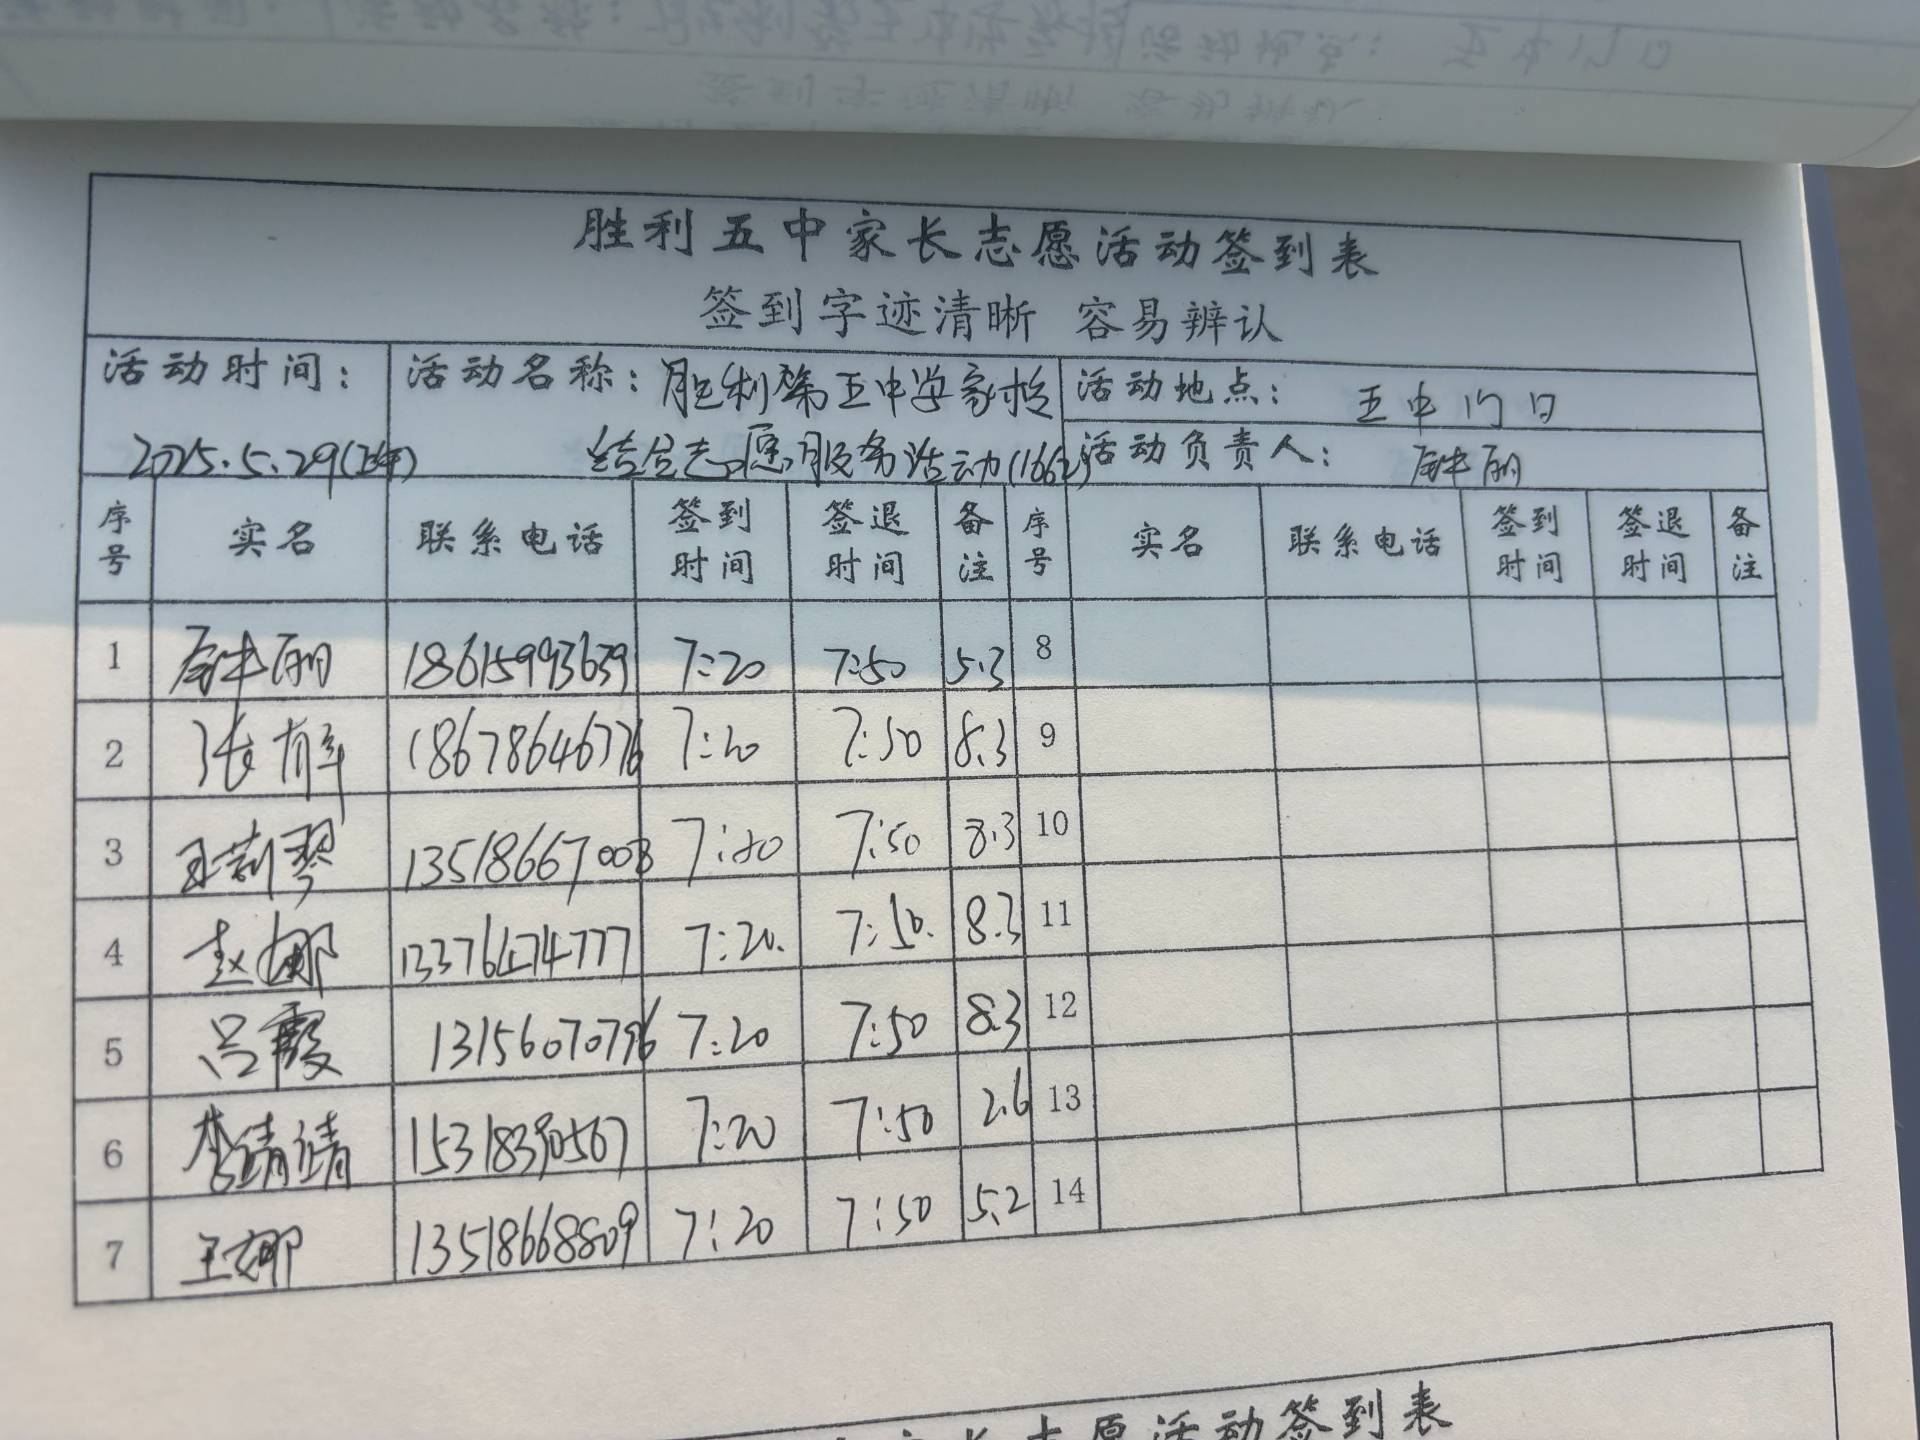 胜利五中家长志愿活动签到表
签到字迹清晰 容易辨认
活动时间： 活动名称：胜利第五中学家校 活动地点： 五中门口
2025.5.29(上午) 结合志愿服务活动 活动负责人： 丽
序号 实名 联系电话 签到时间 签退时间 备注 序号 实名 联系电话 签到时间 签退时间 备注
1 丽 18615993639 7:20 7:50 5.3 8
2 张 18678646776 7:20 7:50 8.3 9
3 王莉琴 13518667008 7:20 7:50 8.3 10
4 赵娜 13376474777 7:20. 7:50. 8.3 11
5 吕霞 13156070796 7:20 7:50 8.3 12
6 李婧婧 15318390567 7:20 7:50 2.6 13
7 王娜 13518668809 7:20 7:50 5.2 14
家长志愿活动签到表